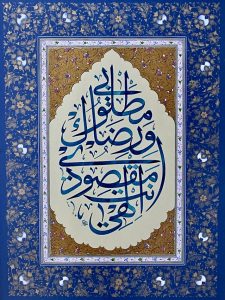 الهي انت
مقصودي
ورضاك
مطلوبي